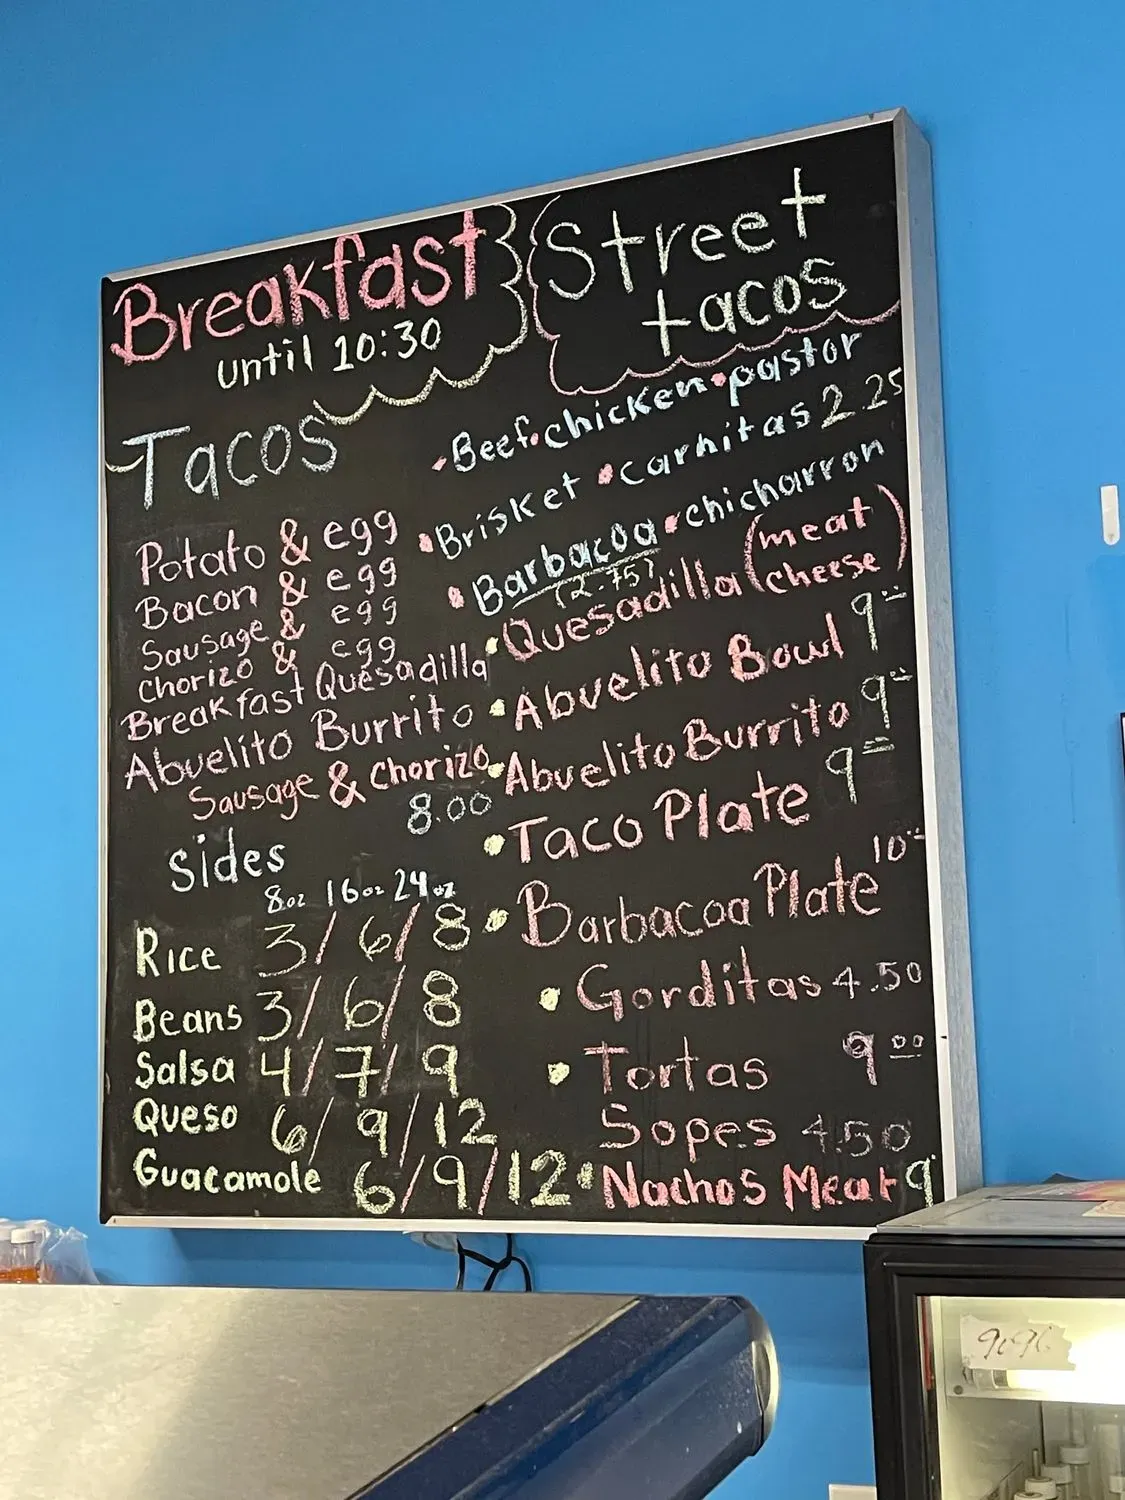 Breakfast
until 10:30
Tacos
Potato & egg
Bacon & egg
Sausage & egg
Chorizo & egg
Breakfast Quesadilla
Abuelito Burrito
Sausage & Chorizo
8.00
Sides
8oz 16oz 24oz
Rice 3/6/8
Beans 3/6/8
Salsa 4/7/9
Queso 6/9/12
Guacamole 6/9/12
Street
tacos
Beef • chicken • pastor
• Brisket • carnitas 2.25
• Barbacoa • chicharron
(2.75)
• Quesadilla (meat
cheese) 9
• Abuelito Bowl 9
• Abuelito Burrito 9
• Taco Plate 10
• Barbacoa Plate
• Gorditas 4.50
• Tortas 9 00
Sopes 4.50
• Nachos Meat 9